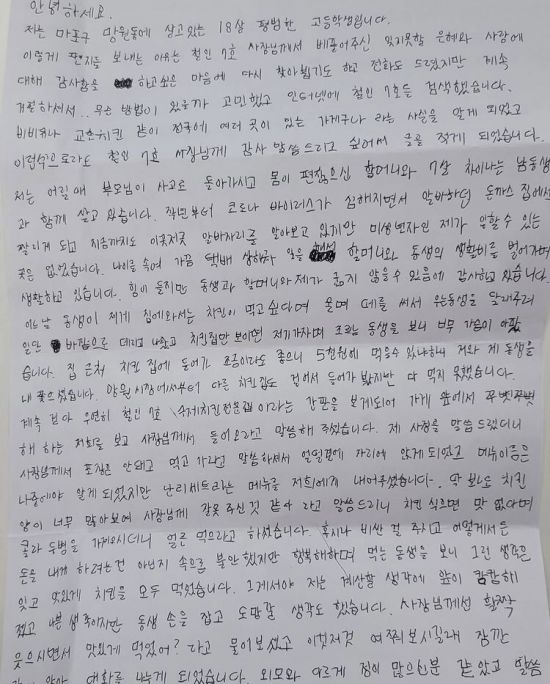 안녕하세요.
저는 마포구 망원동에 살고있는 18살 평범한 고등학생입니다.
이렇게 편지를 보내는 이유는 철인 7호 사장님께서 베풀어주신 잊지못할 은혜와 사랑에
대해 감사함을 하고싶은 마음에 다시 찾아뵙기도 하고 전화도 드렸지만 계속
거절하셔서.. 무슨 방법이 있을까 고민했고 인터넷에 철인 7호를 검색했습니다.
비비큐나 교촌치킨 같이 전국에 여러 곳이 있는 가게구나 라는 사실을 알게 되었고
이런식으로라도 철인 7호 사장님께 감사 말씀드리고 싶어서 글을 적게 되었습니다.
저는 어릴때 부모님이 사고로 돌아가시고 몸이 편찮으신 할머니와 7살 차이나는 남동생
과 함께 살고 있습니다. 작년부터 코로나 바이러스가 심해지면서 알바하던 돈까스 집에서
짤리게 되고 지금까지도 이곳저곳 알바자리를 알아보고 있지만 미성년자인 제가 일할수 있는
곳은 없었습니다. 나이를 속여 가끔 택배 상하차 일을 해서 할머니와 동생의 생활비를 벌어가며
생활하고 있습니다. 힘이 들지만 동생과 할머니와 제가 굶지 않을수 있음에 감사하고 있습니다.
어느날 동생이 제게 집에와서는 치킨이 먹고싶다며 울며 떼를 써서 우는동생을 달래주려
일단 바깥으로 데리고 나왔고 치킨집만 보이면 저기가자며 조르는 동생을 보니 너무 가슴이 아팠
습니다. 집 근처 치킨 집에 들어가 조금이라도 좋으니 5천원에 먹을수 있나하니 저와 제 동생을
내 쫓으셨습니다. 망원시장에서부터 다른 치킨집도 걸어서 들어가 봤지만 다 먹지 못했습니다.
계속 걷다 우연히 철인 7호 수제치킨전문점이라는 간판을 보게되어 가게 앞에서 쭈뼛쭈뼛
해 하는 저희를 보고 사장님께서 들어오라고 말씀해 주셨습니다. 제 사정을 말씀 드렸더니
사장님께서 포장은 안돼고 먹고가라고 말씀하셔서 얼떨결에 자리에 앉게 되었고 메뉴이름은
나중에야 알게 되었지만 난리세트라는 메뉴를 저희에게 내어주셨습니다. 딱 봐도 치킨
양이 너무 많아보여 사장님께 잘못 주신것 같다 라고 말씀드리니 치킨 식으면 맛 없다며
콜라 두병을 가져오시더니 얼른 먹으라고 하셨습니다. 혹시나 비싼 걸 주시고 어떻게서든
돈을 내게 하려는건 아닌지 속으로 불안했지만 행복해하며 먹는 동생을 보니 그런 생각은
잊고 맛있게 치킨을 모두 먹었습니다. 그제서야 저는 계산할 생각에 앞이 캄캄해
졌고 나쁜 생각이지만 동생 손을 잡고 도망갈 생각도 했습니다. 사장님께선 활짝
웃으시면서 맛있게 먹었어? 라고 물어보셨고 이것저것 여쭤보시길래 잠깐
앉아 대화를 나누게 되었습니다. 외모와 다르게 정이 많으신분 같았고 말씀